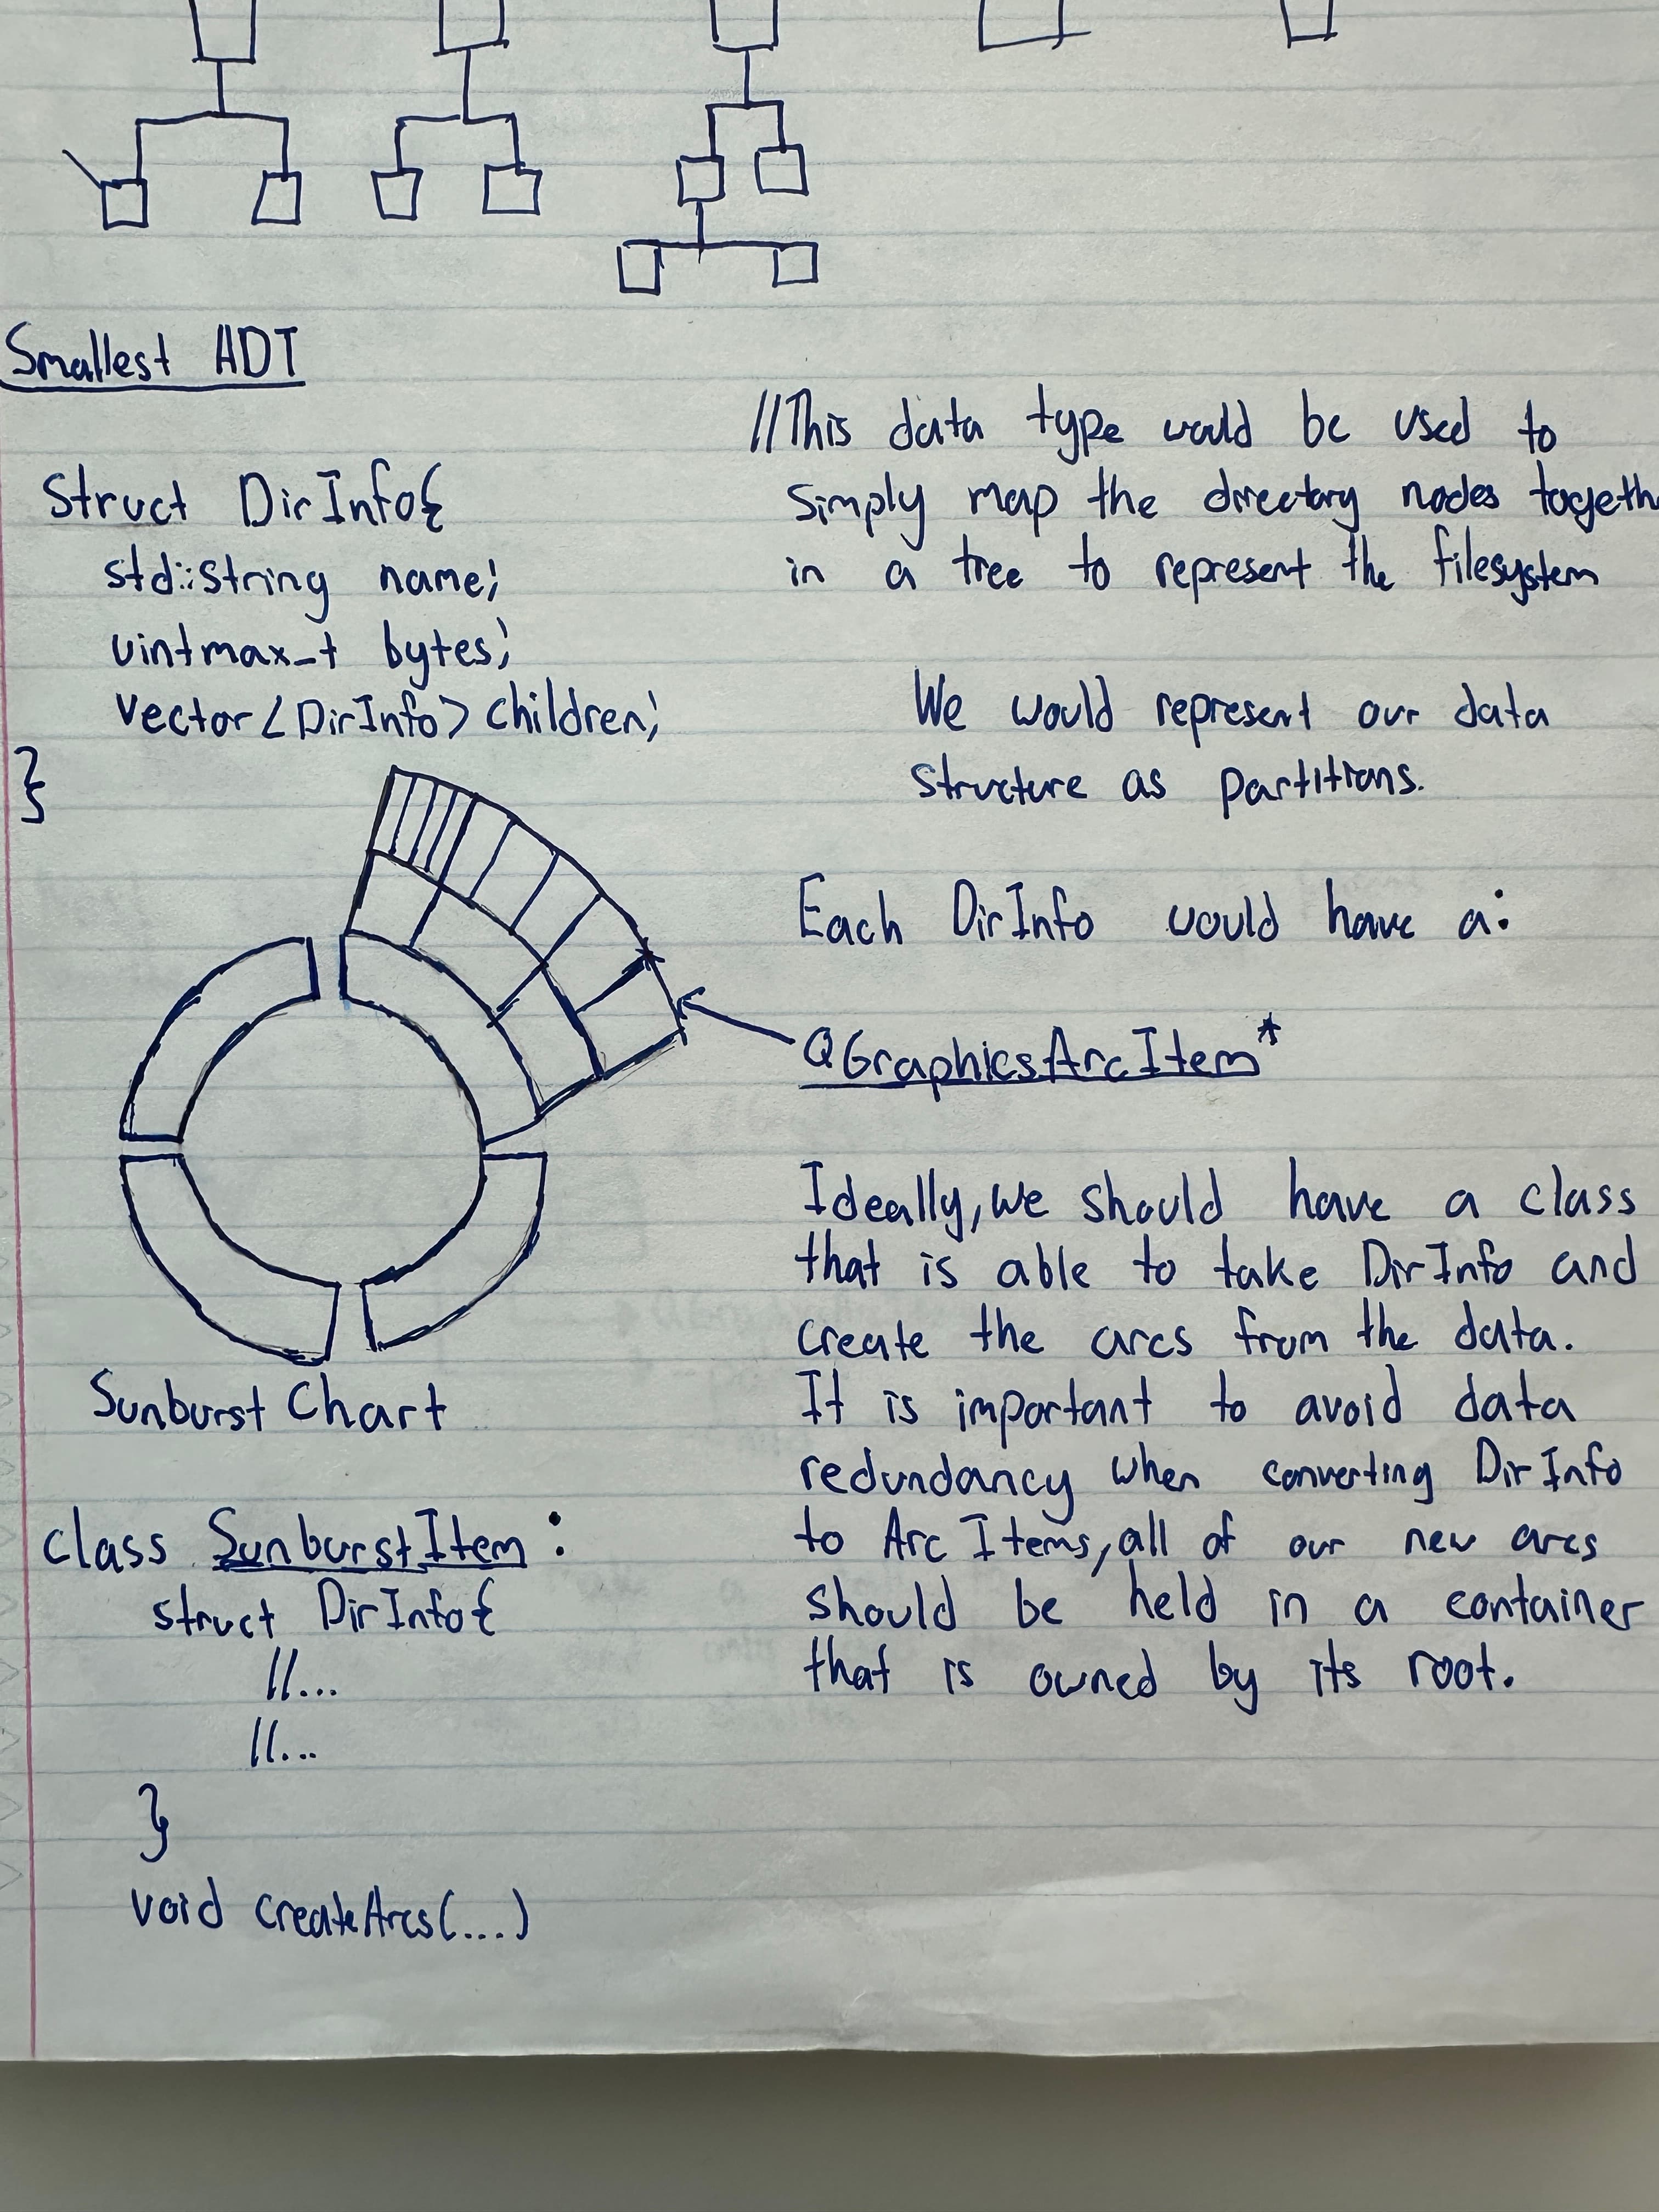 Smallest ADT
Struct DirInfo{
std::string name;
uintmax_t bytes;
vector<DirInfo> children;
}
//This data type would be used to
simply map the directory nodes togeth
in a tree to represent the filesystem
We would represent our data
structure as partitions.
Each DirInfo would have a:
QGraphicsArcItem*
Ideally, we should have a class
that is able to take DirInfo and
create the arcs from the data.
It is important to avoid data
redundancy when converting DirInfo
to Arc Items, all of our new arcs
should be held in a container
that is owned by its root.
Sunburst Chart
class SunburstItem:
struct DirInfo{
//...
//...
}
void createArcs(....)